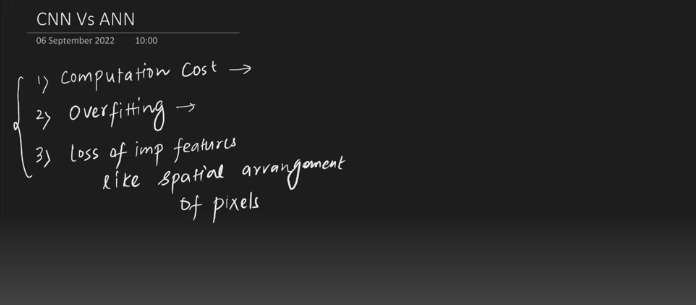 CNN Vs ANN
06 September 2022 10:00
1) Computation Cost →
2) Overfitting →
3) loss of imp features
like spatial arrangement
of pixels